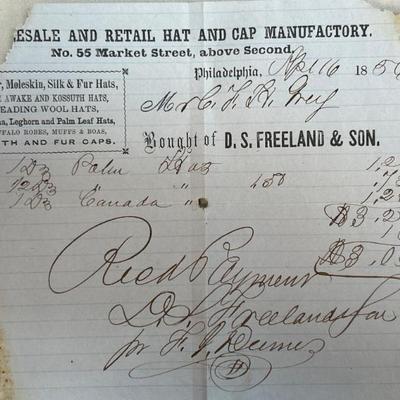 LESALE AND RETAIL HAT AND CAP MANUFACTORY.
No. 55 Market Street, above Second,
r, Moleskin, Silk & Fur Hats,
E AWAKE AND KOSSUTH HATS,
EADING WOOL HATS,
na, Leghorn and Palm Leaf Hats,
FFALO ROBES, MUFFS & BOAS,
TH AND FUR CAPS.
Philadelphia, Apl 16 185
Mr C.
Bought of D. S. FREELAND & SON.
1 Dz Palm Hats 1,2
1/2 Dz " " 150
1 Dz Canada " 1,2
$3,2
$3,0
Recd Payment
D. S. Freeland & Son
pr F. J.